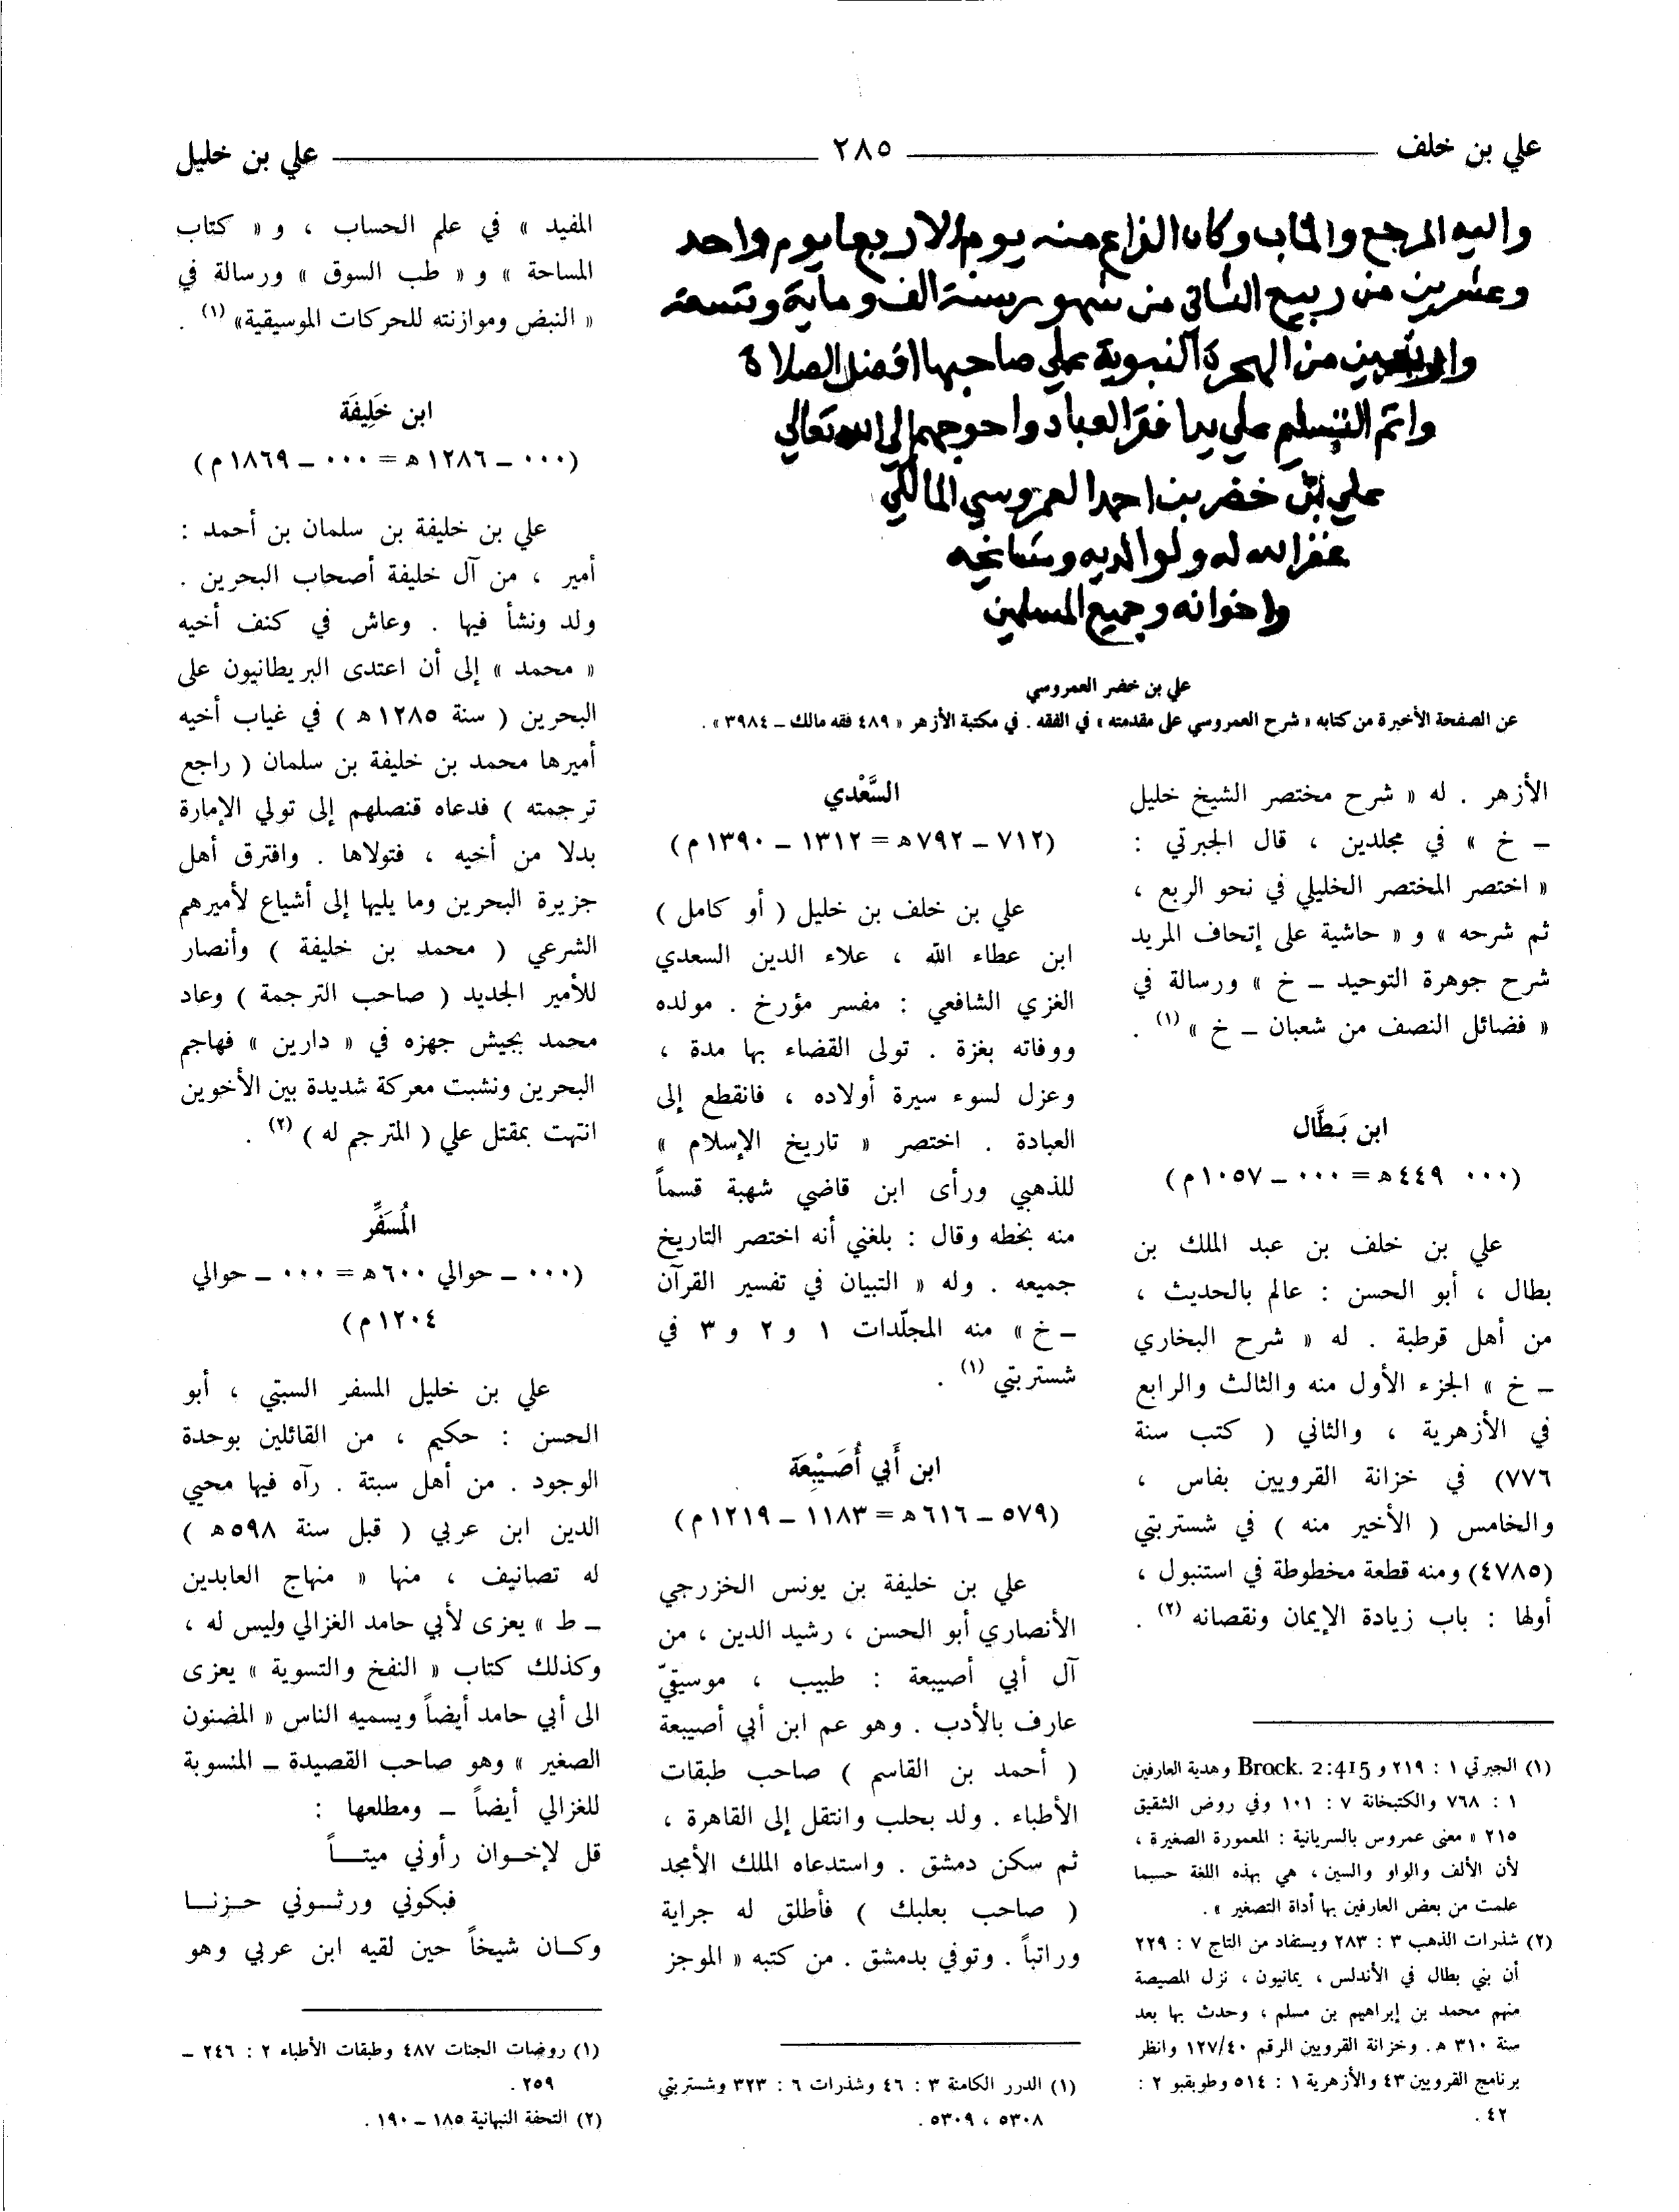 علي بن خلف ــــــ ٢٨٥ ــــــ علي بن خليل
واليه المرجع والماب وكان الفراغ منه يوم الاربعا يوم واحد
وعشرين من ربيع الثاني من شهور سنة الف وماية وتسعة
واربعين من الهجرة النبوية علي صاحبها افضل الصلاة
واتم التسليم علي يد افقر العباد واحوجهم الي الله تعالي
علي بن خضر بن احمد العمروسي المالكي
غفر الله له ولوالديه ومشايخه
واخوانه وجميع المسلمين
علي بن خضر العمروسي
عن الصفحة الأخيرة من كتابه « شرح العمروسي على مقدمته » في الفقه . في مكتبة الأزهر « ٤٨٩ فقه مالك ــ ٣٩٨٤ » .
الأزهر . له « شرح مختصر الشيخ خليل
ــ خ » في مجلدين ، قال الجبرتي :
« اختصر المختصر الخليلي في نحو الربع ،
ثم شرحه » و « حاشية على إتحاف المريد
شرح جوهرة التوحيد ــ خ » ورسالة في
« فضائل النصف من شعبان ــ خ » (١) .
ابن بَطَّال
(٠٠٠ ٤٤٩ ه = ٠٠٠ ــ ١٠٥٧ م)
علي بن خلف بن عبد الملك بن
بطال ، أبو الحسن : عالم بالحديث ،
من أهل قرطبة . له « شرح البخاري
ــ خ » الجزء الأول منه والثالث والرابع
في الأزهرية ، والثاني ( كتب سنة
٧٧٦) في خزانة القرويين بفاس ،
والخامس ( الأخير منه ) في شستربتي
(٤٧٨٥) ومنه قطعة مخطوطة في استنبول ،
أولها : باب زيادة الإيمان ونقصانه (٢) .
(١) الجبرتي ١ : ٢١٩ و Brock. 2:415 وهدية العارفين
١ : ٧٦٨ والكتبخانة ٧ : ١٠١ وفي روض الشقيق
٢١٥ « معنى عمروس بالسريانية : المعمورة الصغيرة ،
لأن الألف والواو والسين ، هي بهذه اللغة حسبما
علمت من بعض العارفين بها أداة التصغير » .
(٢) شذرات الذهب ٣ : ٢٨٣ ويستفاد من التاج ٧ : ٢٢٩
أن بني بطال في الأندلس ، يمانيون ، نزل المصيصة
منهم محمد بن إبراهيم بن مسلم ، وحدث بها بعد
سنة ٣١٠ ه . وخزانة القرويين الرقم ١٢٧/٤٠ وانظر
برنامج القرويين ٤٣ والأزهرية ١ : ٥١٤ وطوبقبو ٢ :
٤٢ .
السَّعْدي
(٧١٢ ــ ٧٩٢ ه = ١٣١٢ ــ ١٣٩٠ م)
علي بن خلف بن خليل ( أو كامل )
ابن عطاء الله ، علاء الدين السعدي
الغزي الشافعي : مفسر مؤرخ . مولده
ووفاته بغزة . تولى القضاء بها مدة ،
وعزل لسوء سيرة أولاده ، فانقطع إلى
العبادة . اختصر « تاريخ الإسلام »
للذهبي ورأى ابن قاضي شهبة قسماً
منه بخطه وقال : بلغني أنه اختصر التاريخ
جميعه . وله « التبيان في تفسير القرآن
ــ خ » منه المجلّدات ١ و ٢ و ٣ في
شستربتي (١) .
ابن أَبي أُصَيْبِعَة
(٥٧٩ ــ ٦١٦ ه = ١١٨٣ ــ ١٢١٩ م)
علي بن خليفة بن يونس الخزرجي
الأنصاري أبو الحسن ، رشيد الدين ، من
آل أبي أصيبعة : طبيب ، موسيقيّ
عارف بالأدب . وهو عم ابن أبي أصيبعة
( أحمد بن القاسم ) صاحب طبقات
الأطباء . ولد بحلب وانتقل إلى القاهرة ،
ثم سكن دمشق . واستدعاه الملك الأمجد
( صاحب بعلبك ) فأطلق له جراية
وراتباً . وتوفي بدمشق . من كتبه « الموجز
(١) الدرر الكامنة ٣ : ٤٦ وشذرات ٦ : ٣٢٣ وشستربتي
٥٣٠٨ ، ٥٣٠٩ .
المفيد » في علم الحساب ، و « كتاب
المساحة » و « طب السوق » ورسالة في
« النبض وموازنته للحركات الموسيقية» (١) .
ابن خَلِيفَة
(٠٠٠ ــ ١٢٨٦ ه = ٠٠٠ ــ ١٨٦٩ م)
علي بن خليفة بن سلمان بن أحمد :
أمير ، من آل خليفة أصحاب البحرين .
ولد ونشأ فيها . وعاش في كنف أخيه
« محمد » إلى أن اعتدى البريطانيون على
البحرين ( سنة ١٢٨٥ ه ) في غياب أخيه
أميرها محمد بن خليفة بن سلمان ( راجع
ترجمته ) فدعاه قنصلهم إلى تولي الإمارة
بدلا من أخيه ، فتولاها . وافترق أهل
جزيرة البحرين وما يليها إلى أشياع لأميرهم
الشرعي ( محمد بن خليفة ) وأنصار
للأمير الجديد ( صاحب الترجمة ) وعاد
محمد بجيش جهزه في « دارين » فهاجم
البحرين ونشبت معركة شديدة بين الأخوين
انتهت بمقتل علي ( المترجم له ) (٢) .
المُسَفِّر
(٠٠٠ ــ حوالي ٦٠٠ ه = ٠٠٠ ــ حوالي
١٢٠٤ م)
علي بن خليل المسفر السبتي ، أبو
الحسن : حكيم ، من القائلين بوحدة
الوجود . من أهل سبتة . رآه فيها محيي
الدين ابن عربي ( قبل سنة ٥٩٨ ه )
له تصانيف ، منها « منهاج العابدين
ــ ط » يعزى لأبي حامد الغزالي وليس له ،
وكذلك كتاب « النفخ والتسوية » يعزى
الى أبي حامد أيضاً ويسميه الناس « المضنون
الصغير » وهو صاحب القصيدة ــ المنسوبة
للغزالي أيضاً ــ ومطلعها :
قل لإخــوان رأوني ميتــــاً
فبكوني ورثــوني حــزنــا
وكــان شيخاً حين لقيه ابن عربي وهو
(١) روضات الجنات ٤٨٧ وطبقات الأطباء ٢ : ٢٤٦ ــ
٢٥٩ .
(٢) التحفة النبهانية ١٨٥ ــ ١٩٠ .